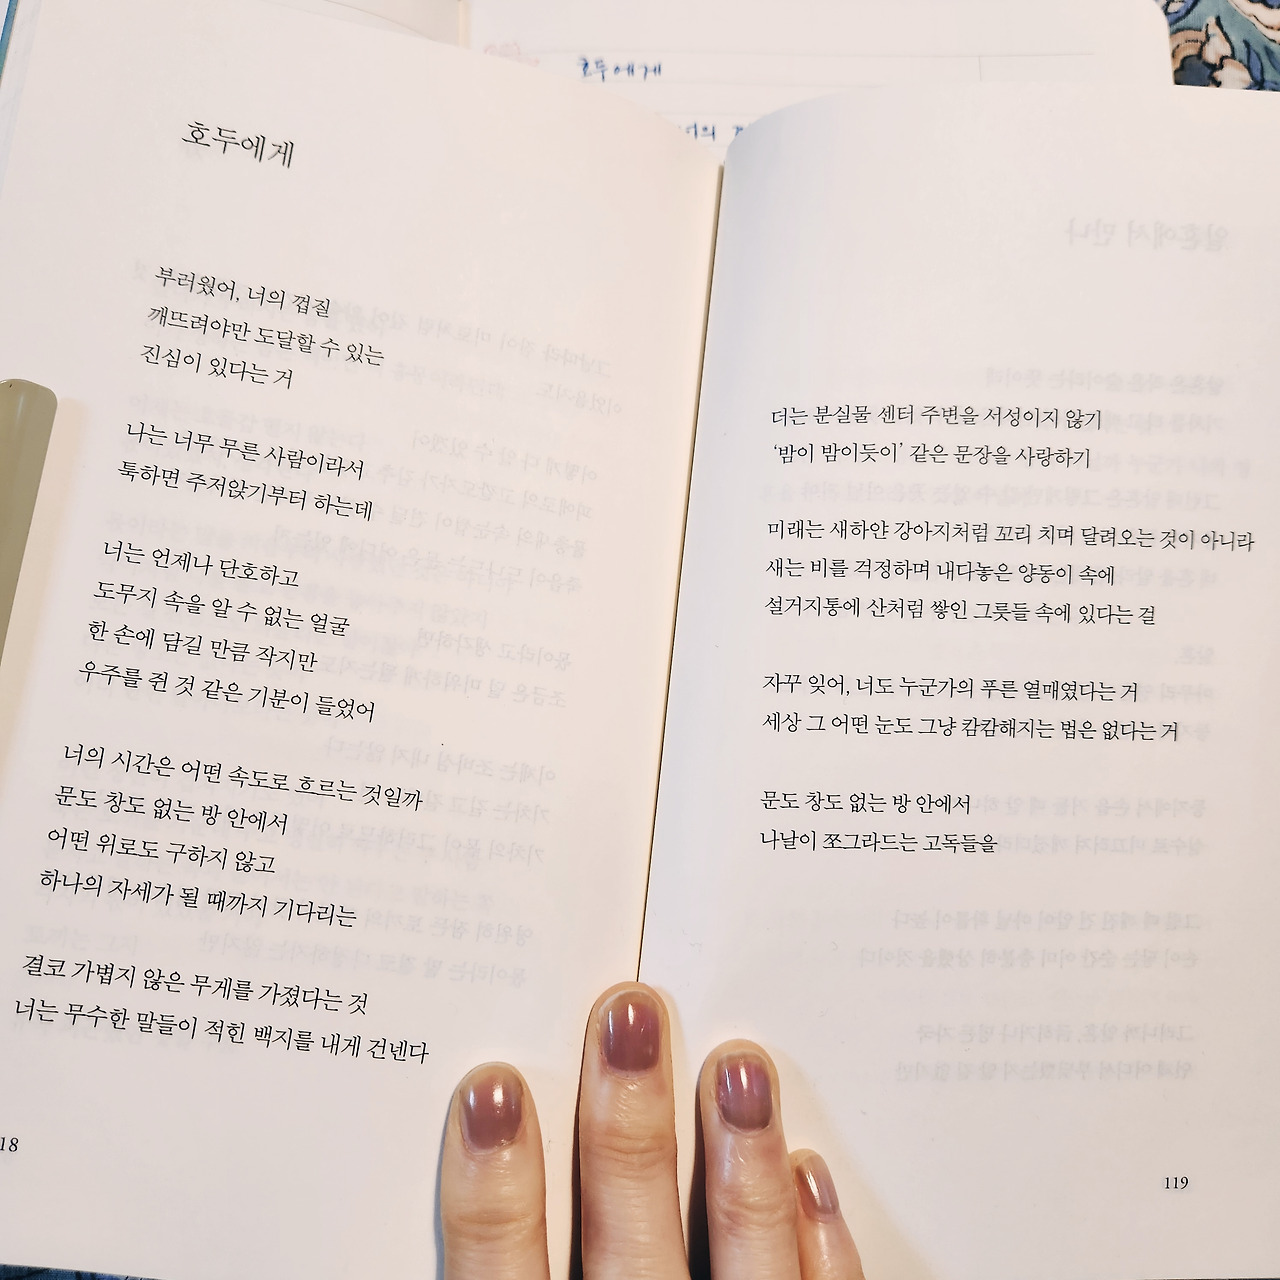 호두에게
호두에게
부러웠어, 너의 껍질
깨뜨려야만 도달할 수 있는
진심이 있다는 거
나는 너무 무른 사람이라서
툭하면 주저앉기부터 하는데
너는 언제나 단호하고
도무지 속을 알 수 없는 얼굴
한 손에 담길 만큼 작지만
우주를 쥔 것 같은 기분이 들었어
너의 시간은 어떤 속도로 흐르는 것일까
문도 창도 없는 방 안에서
어떤 위로도 구하지 않고
하나의 자세가 될 때까지 기다리는
결코 가볍지 않은 무게를 가졌다는 것
너는 무수한 말들이 적힌 백지를 내게 건넨다
18
더는 분실물 센터 주변을 서성이지 않기
‘밤이 밤이듯이’ 같은 문장을 사랑하기
미래는 새하얀 강아지처럼 꼬리 치며 달려오는 것이 아니라
새는 비를 걱정하며 내다놓은 양동이 속에
설거지통에 산처럼 쌓인 그릇들 속에 있다는 걸
자꾸 잊어, 너도 누군가의 푸른 열매였다는 거
세상 그 어떤 눈도 그냥 캄캄해지는 법은 없다는 거
문도 창도 없는 방 안에서
나날이 쪼그라드는 고독들을
119